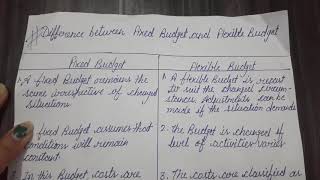 # Difference between Fixed Budget and Flexible Budget
Fixed Budget
Flexible Budget
1. A fixed Budget remains the
same irrespective of changed
situations
1. A flexible Budget is recast
to suit the changed circum-
stances. Adjustments can be
made if the situation demands
fixed Budget assumes that
conditions will remain
constant
2. The Budget is changed if
level of activities varies
In this Budget, costs are
3. The costs are classified as